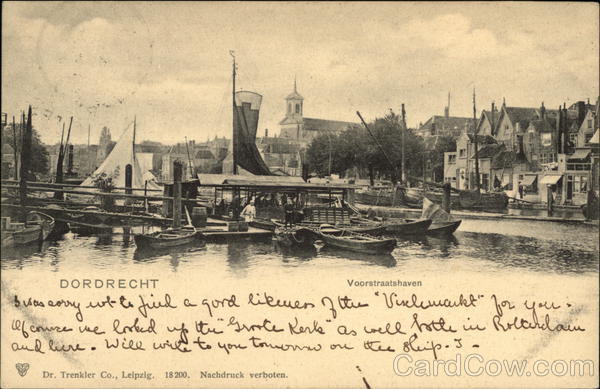 DORDRECHT
Voorstraatshaven
I was sorry not to find a good likeness of the "Vischmarkt" for you.
Of course we looked up the "Groote Kerk" as well both in Rotterdam
and here. Will write to you tomorrow on the ship. J.
Dr. Trenkler Co., Leipzig. 18 200. Nachdruck verboten.
CardCow.com